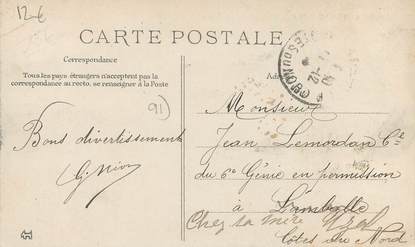 12€
CARTE POSTALE
Correspondance
Tous les pays étrangers n'acceptent pas la
correspondance au recto, se renseigner à la Poste
91)
Bons divertissements
Monsieur
Jean Lemordan Cal
du 6e Génie en permission
à Lamballe
Chez sa mère
Côtes du Nord